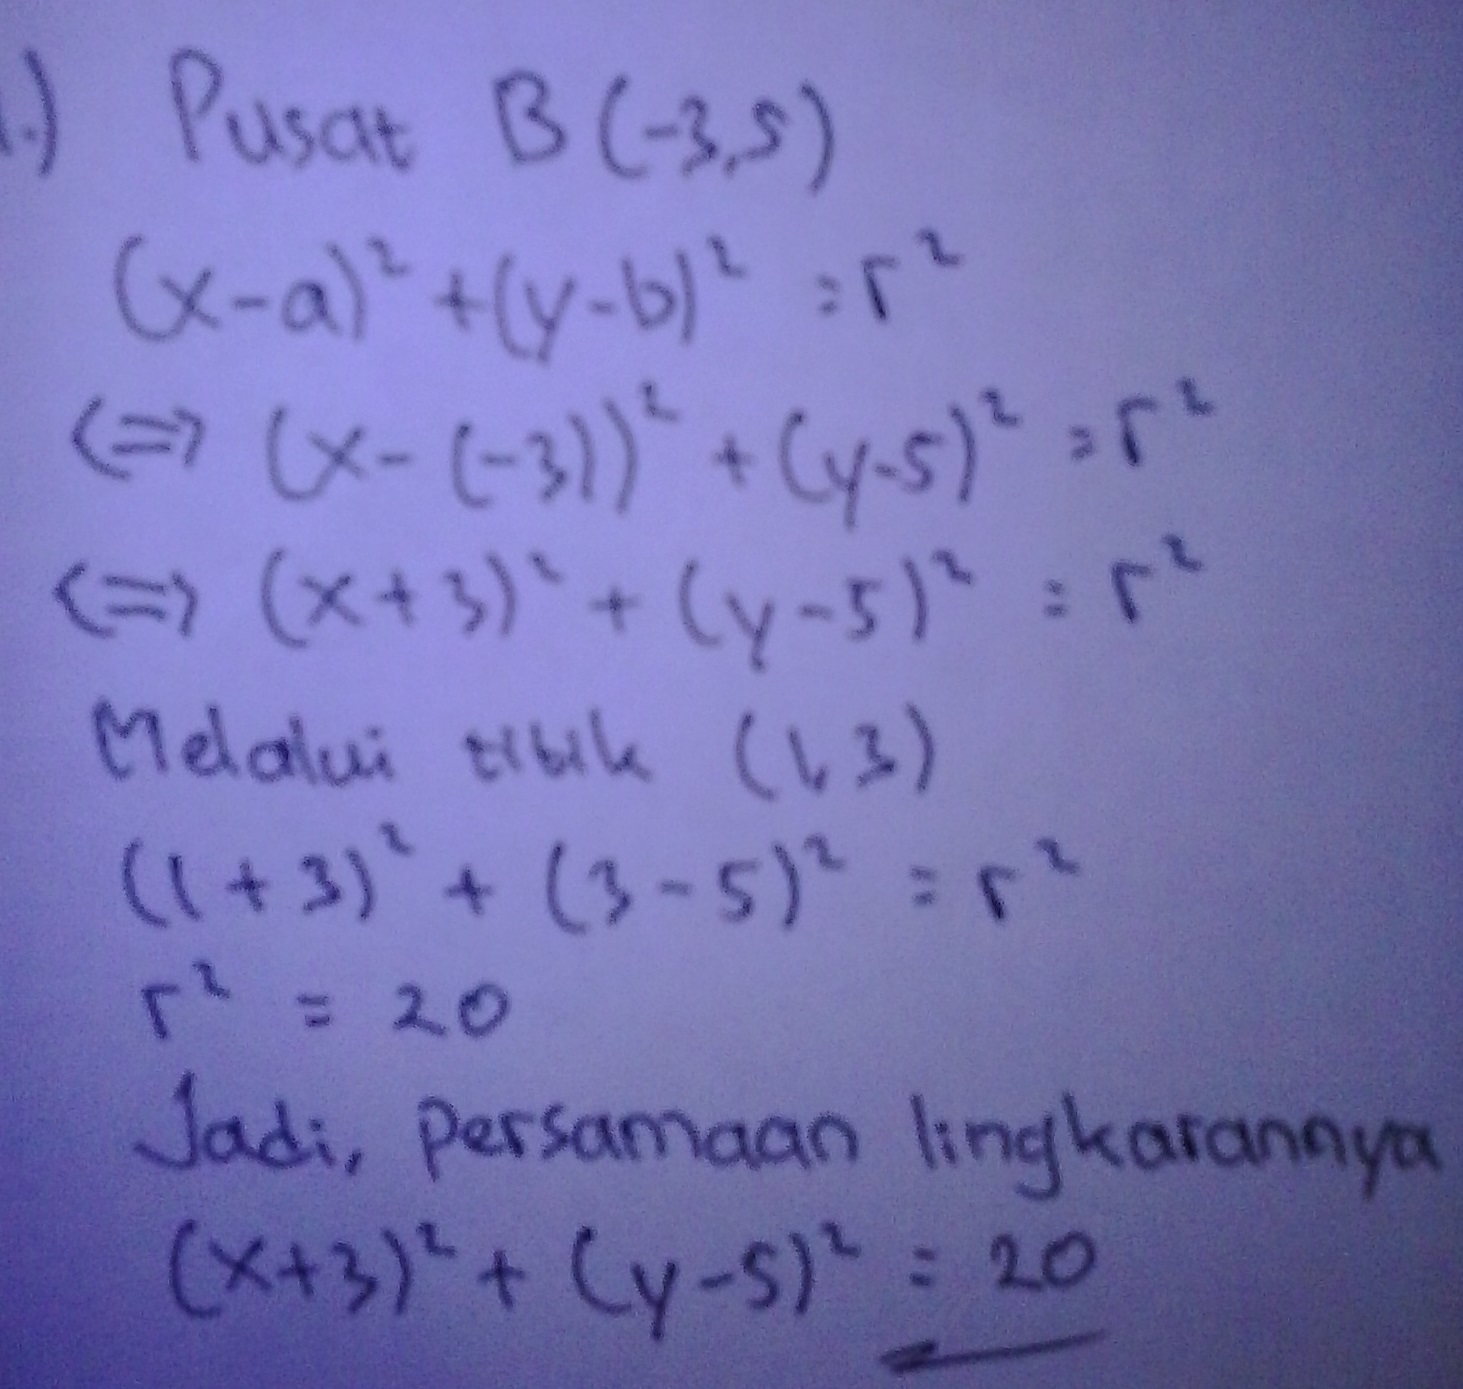 1.) Pusat B(-3,5)
(x-a)² + (y-b)² = r²
<=> (x-(-3))² + (y-5)² = r²
<=> (x+3)² + (y-5)² = r²
Melalui titik (1,3)
(1+3)² + (3-5)² = r²
r² = 20
Jadi, persamaan lingkarannya
(x+3)² + (y-5)² = 20